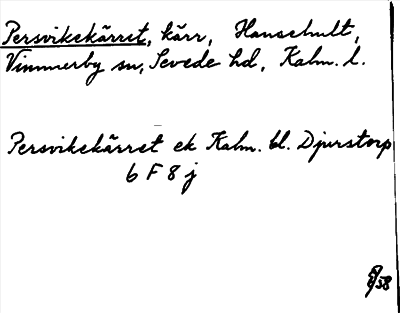 Persvikekärret, kärr, Hanschult,
Vimmerby sn, Sevede hd, Kalm. l.
Persvikekärret ek Kalm. bl. Djurstorp
6 F 8 j